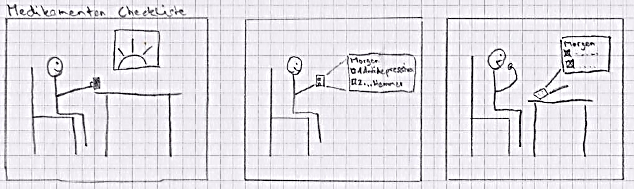 Medikamenten Checkliste
Morgen
1. Antidepressiva
2...
Morgen